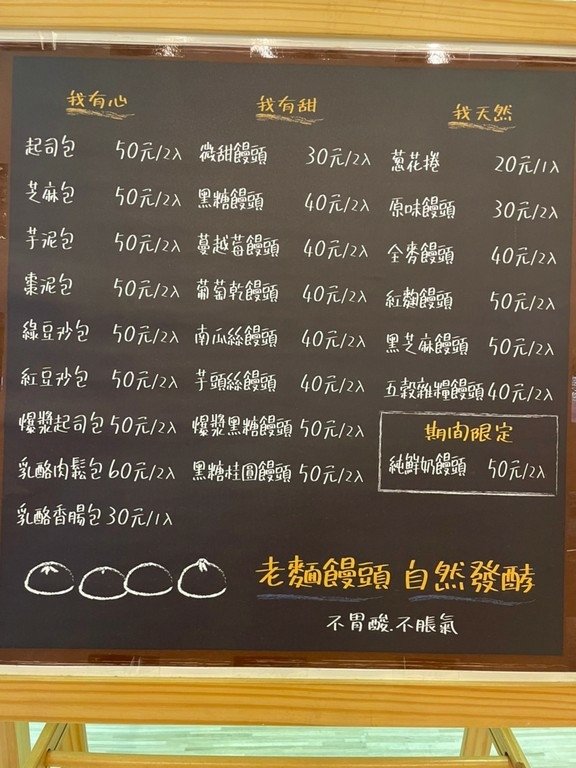 我有心
起司包 50元/2入
芝麻包 50元/2入
芋泥包 50元/2入
棗泥包 50元/2入
綠豆沙包 50元/2入
紅豆沙包 50元/2入
爆漿起司包 50元/2入
乳酪肉鬆包 60元/2入
乳酪香腸包 30元/1入
我有甜
微甜饅頭 30元/2入
黑糖饅頭 40元/2入
蔓越莓饅頭 40元/2入
葡萄乾饅頭 40元/2入
南瓜絲饅頭 40元/2入
芋頭絲饅頭 40元/2入
爆漿黑糖饅頭 50元/2入
黑糖桂圓饅頭 50元/2入
我天然
蔥花捲 20元/1入
原味饅頭 30元/2入
全麥饅頭 40元/2入
紅麴饅頭 50元/2入
黑芝麻饅頭 50元/2入
五穀雜糧饅頭 40元/2入
期間限定
純鮮奶饅頭 50元/2入
老麵饅頭 自然發酵
不胃酸.不脹氣